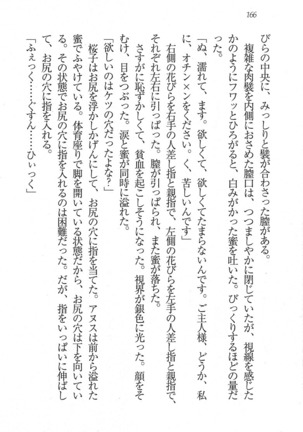 166
びらの中央に、みっしりと襞が合わさった膣がある。
複雑な肉襞を内側におさめた膣口は、つつましやかに閉じていたが、視線を感じた
かのようにフワッとひろがると、白みがかった蜜を吐いた。びっくりするほどの量だ
「ぬ、濡れて、ます。欲しくて、欲しくてたまらないんです。ご主人様、どうか、私
に、オチン×ンをください。く、苦しいんです」
右側の花びらを右手の人差し指と親指で、左側の花びらを左手の人差し指と親指で、
それぞれ左右に引っぱった。膣が引っぱられ、また蜜が落ちた。
さすがに恥ずかしくて、貧血を起こしそうになった。視界が銀色に光った。顔をそ
むけ、目をつぶった。涙と蜜が同時に溢れた。
「欲しいのはケツの穴だったよな？」
桜子はお尻を浮かしかげんにして、お尻の穴に指を当てた。アヌスは前から溢れた
蜜でふやけている。体育座りで脚を開いている状態だから、お尻の穴は下を向いてい
る。その状態でお尻の穴に指を入れるのは困難だった。だが、指をいっぱいに伸ばし
て、お尻の穴に指を入れる。
「ふぇっく……ぐすん……ひぃっく」